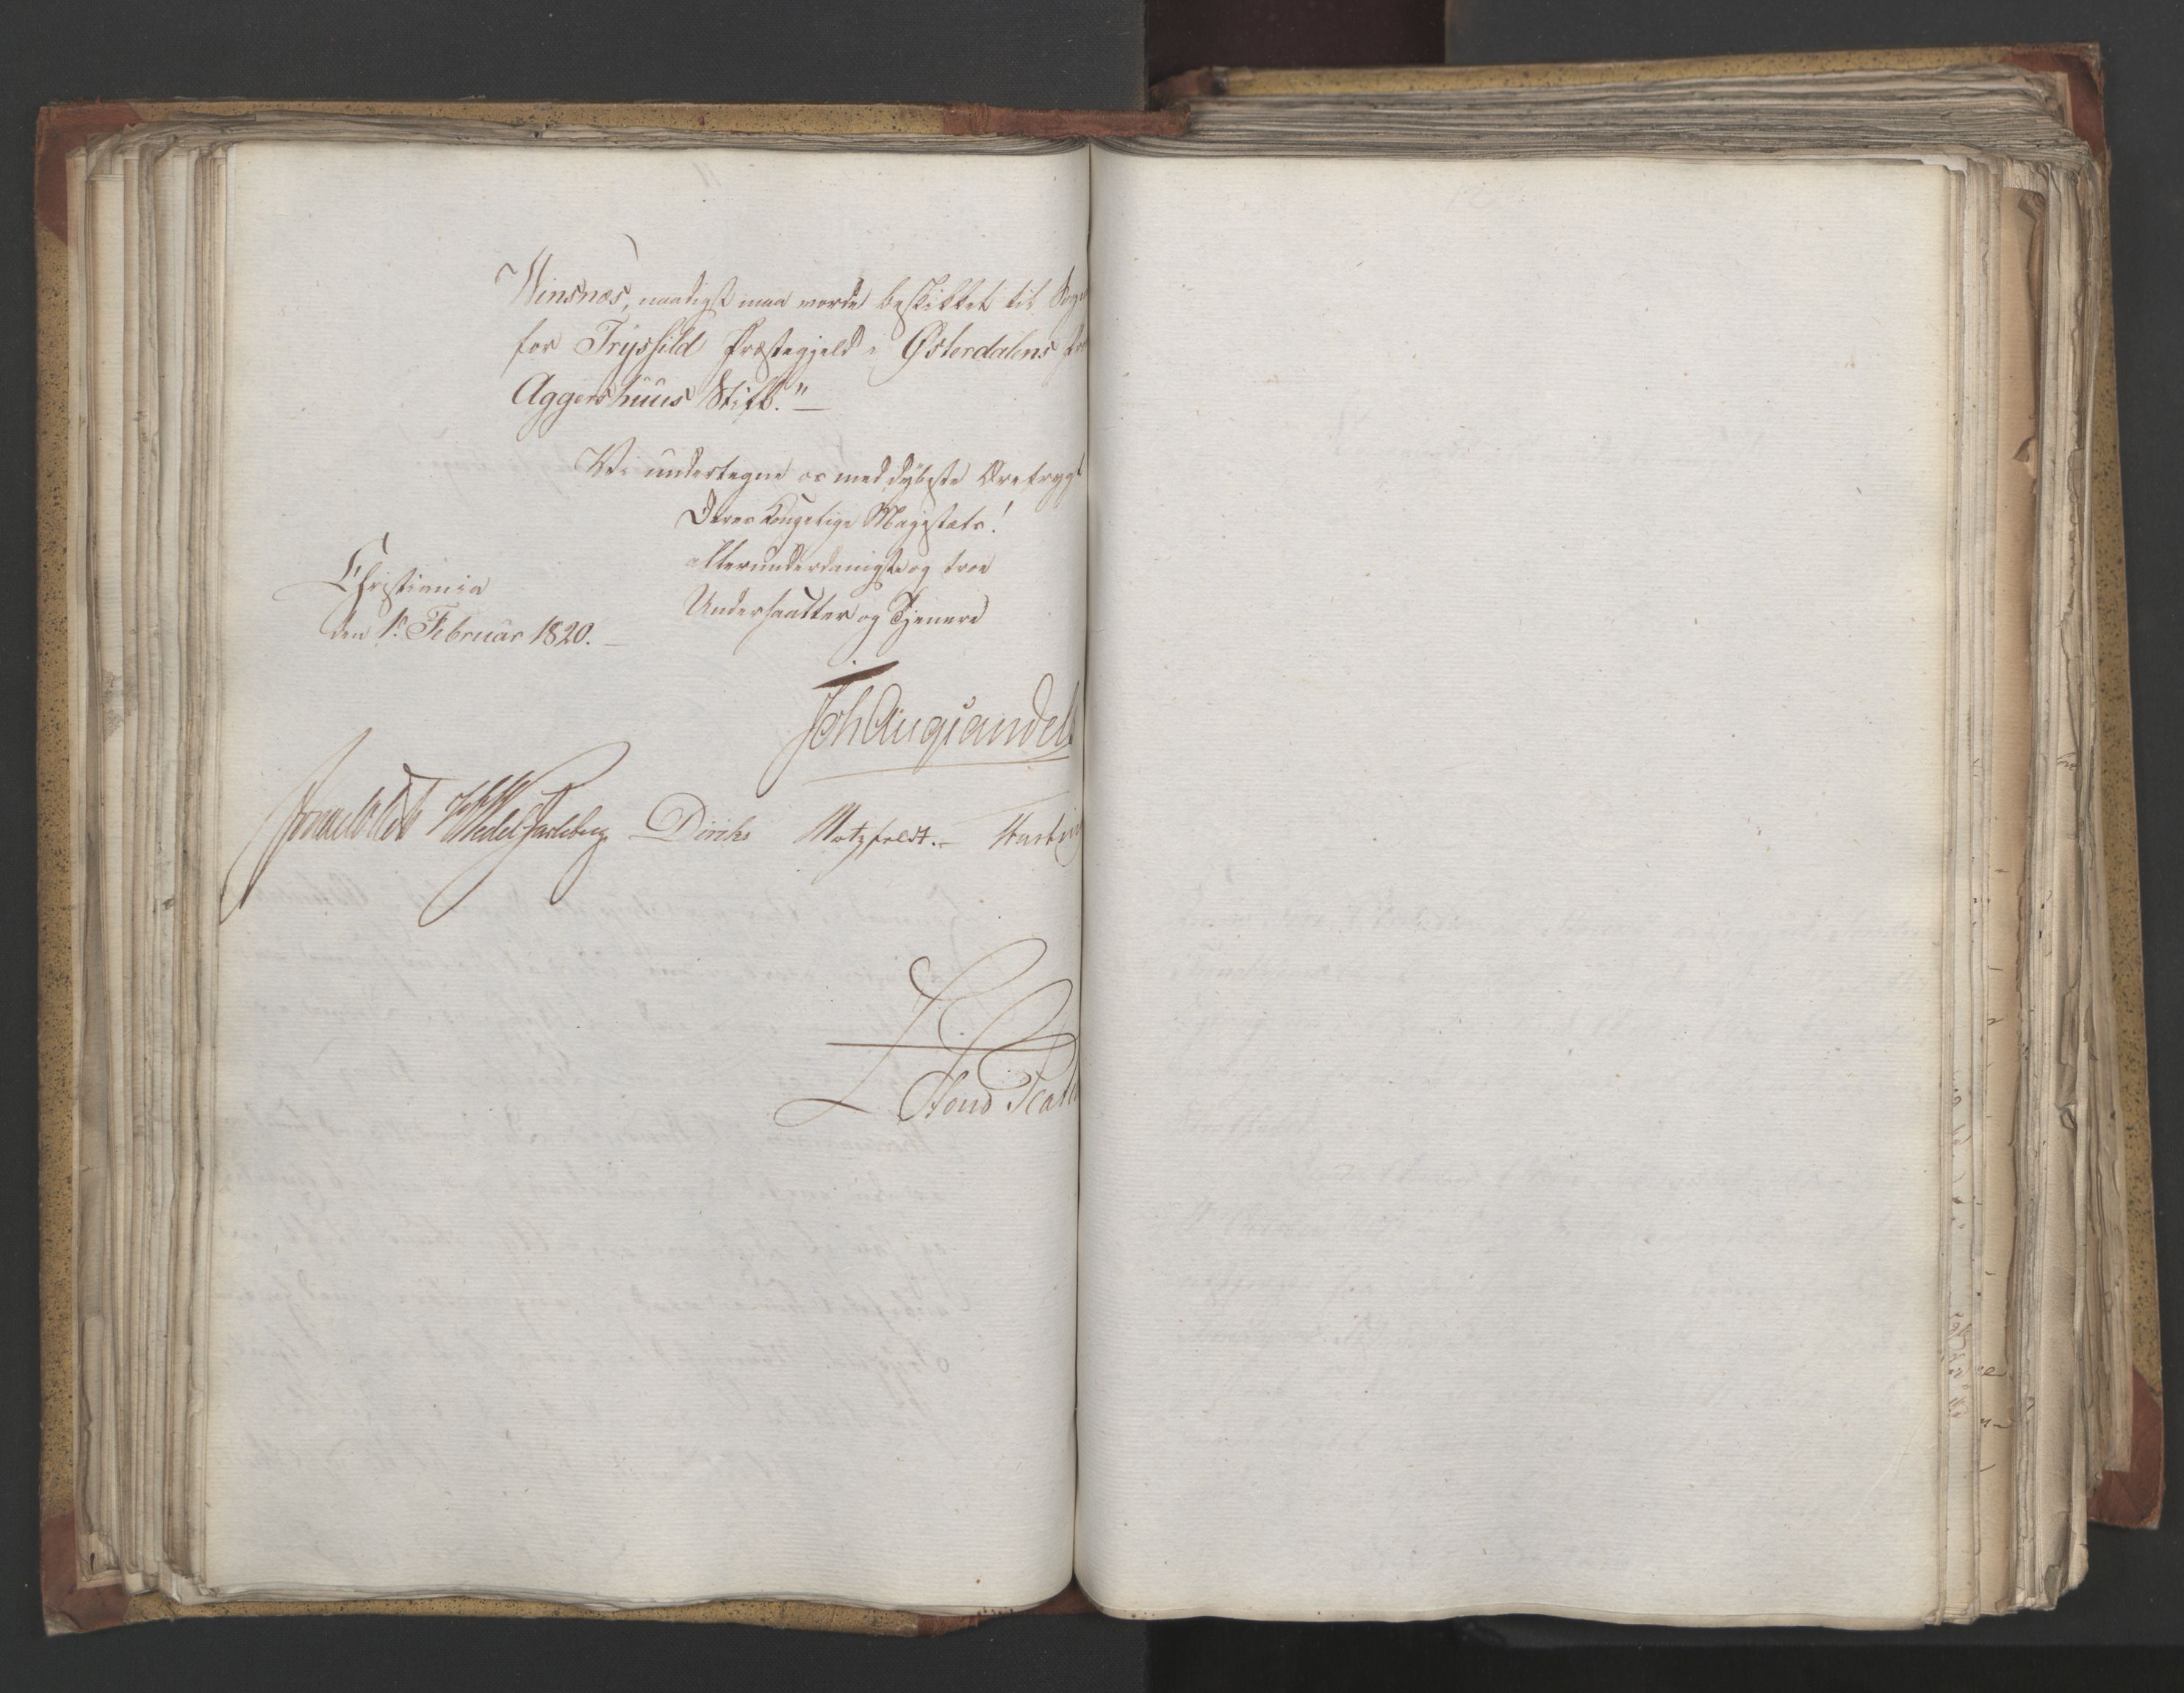 Winsnæs, naadigst maa vorde beskikket til Sogne
for Trysild Præstegjeld i Østerdalens
Aggershuus Stift."—
Vi undertegne os med dybeste Ærefrygt
Deres Kongelige Majestæts!
allerunderdanigste og troe
Undersaatter og Tjenere
Christiania
den 1. Februar 1820.—
Joh Aug Sandels
Sommerhielm Wedel Jarlsberg Diriks Motzfeldt.—